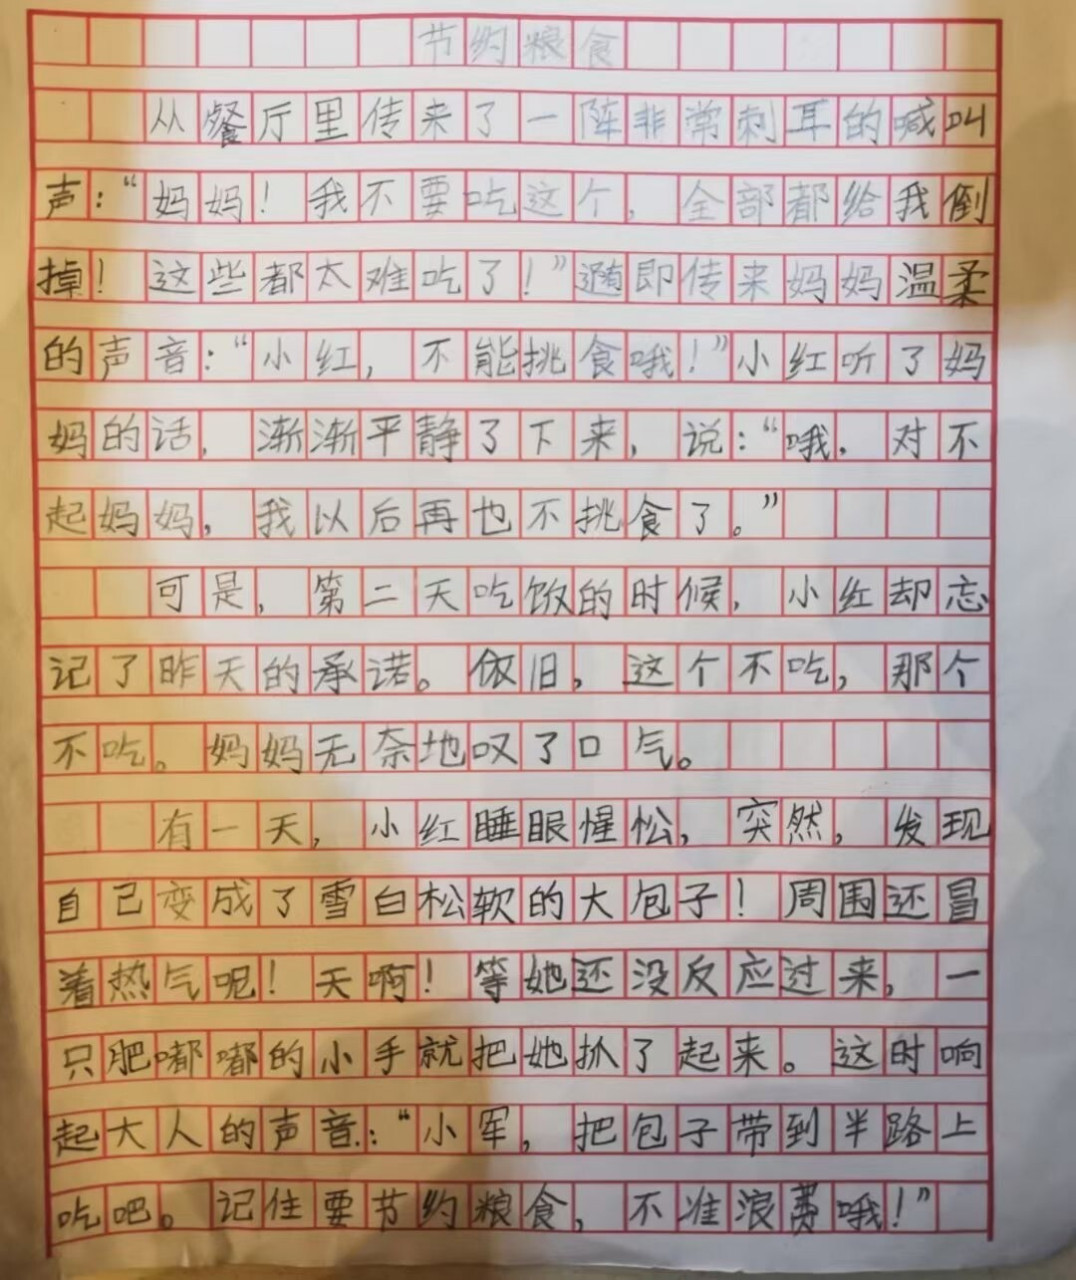 节约粮食
从餐厅里传来了一阵非常刺耳的喊叫
声：“妈妈！我不要吃这个，全部都给我倒
掉！这些都太难吃了！”随即传来妈妈温柔
的声音：“小红，不能挑食哦！”小红听了妈
妈的话，渐渐平静了下来，说：“哦，对不
起妈妈，我以后再也不挑食了。”
可是，第二天吃饭的时候，小红却忘
记了昨天的承诺。依旧，这个不吃，那个
不吃。妈妈无奈地叹了口气。
有一天，小红睡眼惺忪，突然，发现
自己变成了雪白松软的大包子！周围还冒
着热气呢！天啊！等她还没反应过来，一
只肥嘟嘟的小手就把她抓了起来。这时响
起大人的声音：“小军，把包子带到半路上
吃吧。记住要节约粮食，不准浪费哦！”